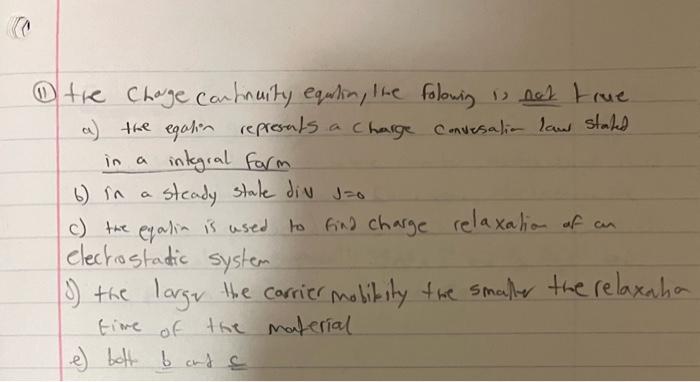 ⑪ the charge continuity equation, the following is not true
a) the equation represents a charge conversation law stated
in a integral form
b) in a steady state div J=0
c) the equation is used to find charge relaxation of an
electrostadic system
d) the larger the carrier mobility the smaller the relaxation
time of the material
e) both b and c